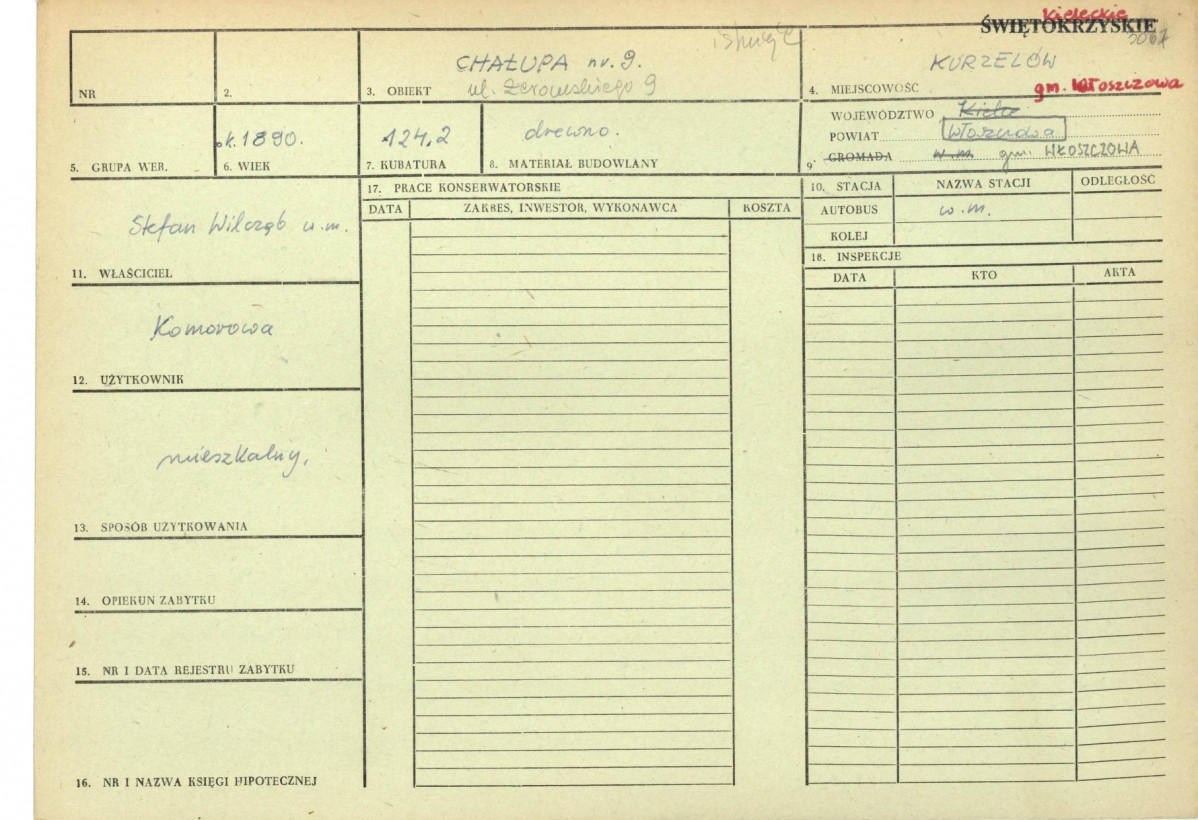 Kieleckie
ŚWIĘTOKRZYSKIE
istnieje
NR
2.
CHAŁUPA nr. 9.
ul. Żeromskiego 9
3. OBIEKT
KURZELÓW
4. MIEJSCOWOŚĆ
gm. Włoszczowa
5. GRUPA WER.
ok. 1890.
6. WIEK
124,2
7. KUBATURA
drewno.
8. MATERIAŁ BUDOWLANY
WOJEWÓDZTWO Kielce
POWIAT Włoszczowa
9. GROMADA w.m. gm. WŁOSZCZOWA
Stefan Wilcząb w.m.
11. WŁAŚCICIEL
Komorowa
12. UŻYTKOWNIK
mieszkalny,
13. SPOSÓB UŻYTKOWANIA
14. OPIEKUN ZABYTKU
15. NR I DATA REJESTRU ZABYTKU
16. NR I NAZWA KSIĘGI HIPOTECZNEJ
17. PRACE KONSERWATORSKIE
DATA ZAKRES, INWESTOR, WYKONAWCA KOSZTA
10. STACJA NAZWA STACJI ODLEGŁOŚĆ
AUTOBUS w.m.
KOLEJ
18. INSPEKCJE
DATA KTO AKTA